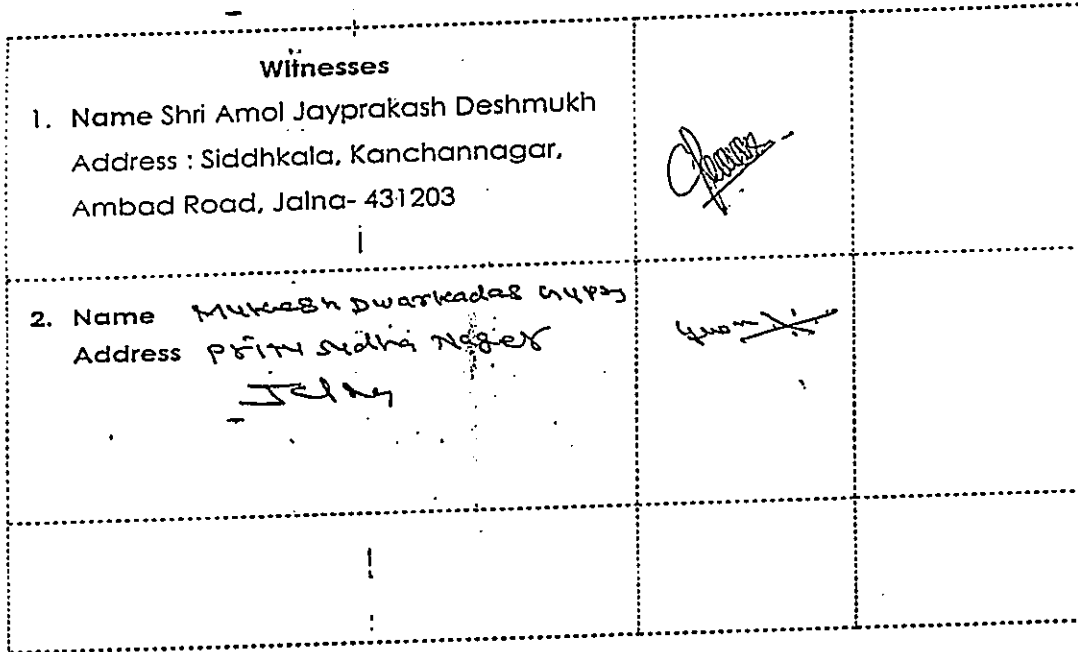 Witnesses
1. Name Shri Amol Jayprakash Deshmukh
Address : Siddhkala, Kanchannagar,
Ambad Road, Jalna- 431203
2. Name Mukesh Dwarkadas
Address Nager
Jalna